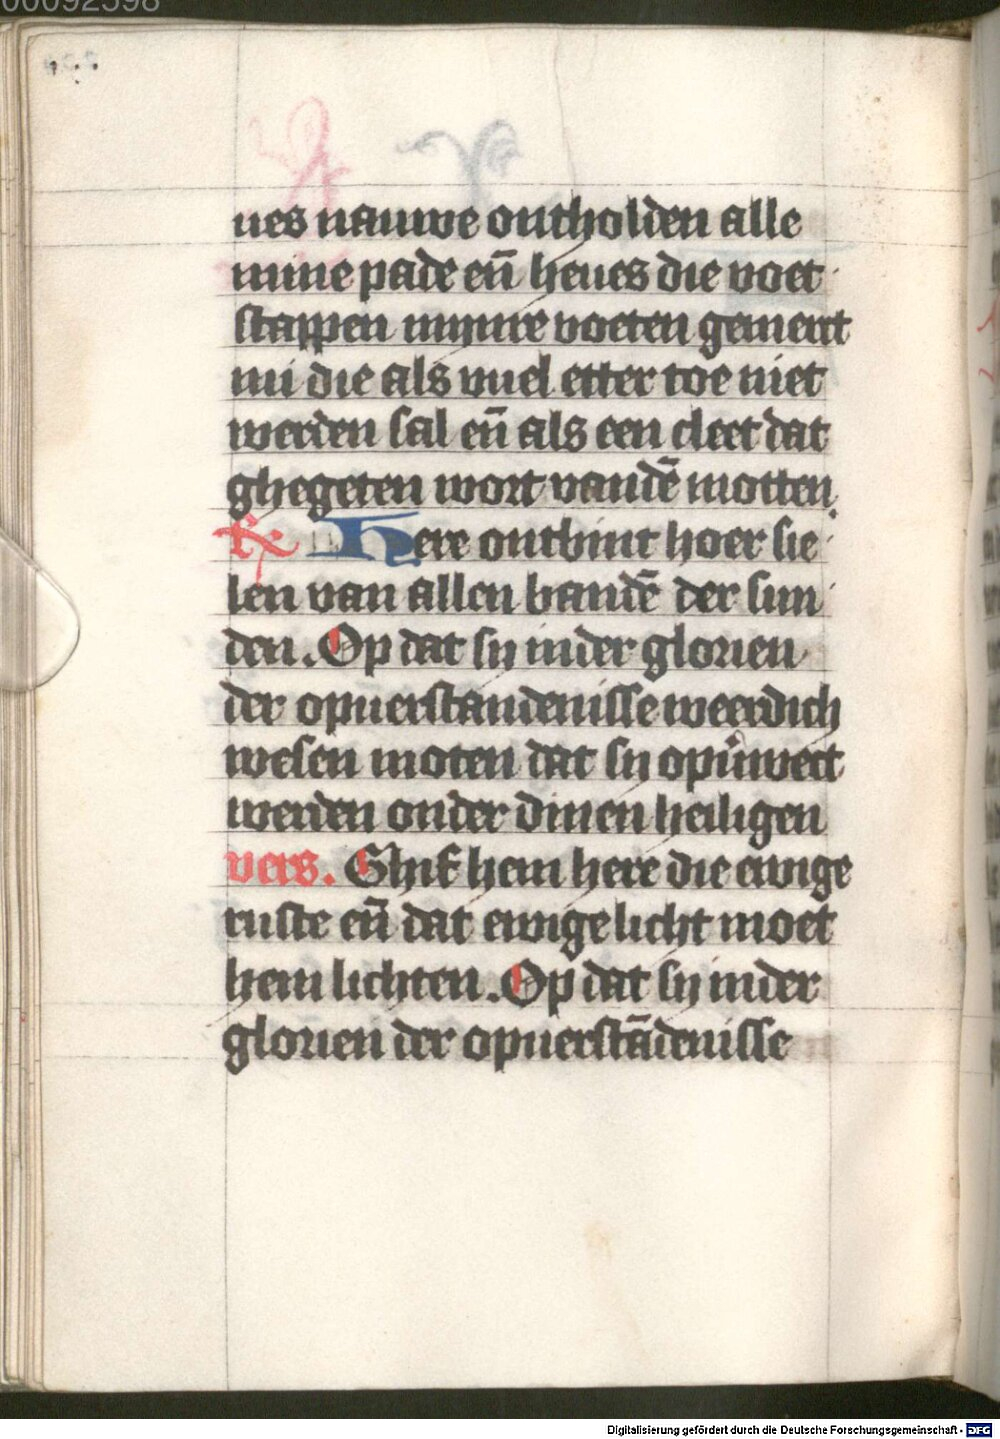 00092598
ues nauwe ontholden alle
mine pade en̄ heues die voet
stappen mynre voeten gemerct
mi die als vuel etter toe niet
werden sal en̄ als een cleet dat
ghegeten wort vandē motten.
R̷ Here ontbint hoer sie
len van allen bandē der sun
den. Op dat sy inder glorien
der opuerstandenisse weerdich
wesen moten dat sy opuwect
werden onder dinen heiligen
vers. Ghif hem here die ewige
ruste en̄ dat ewige licht moet
hem lichten. Op dat sy inder
glorien der opuerstādenisse
Digitalisierung gefördert durch die Deutsche Forschungsgemeinschaft - DFG